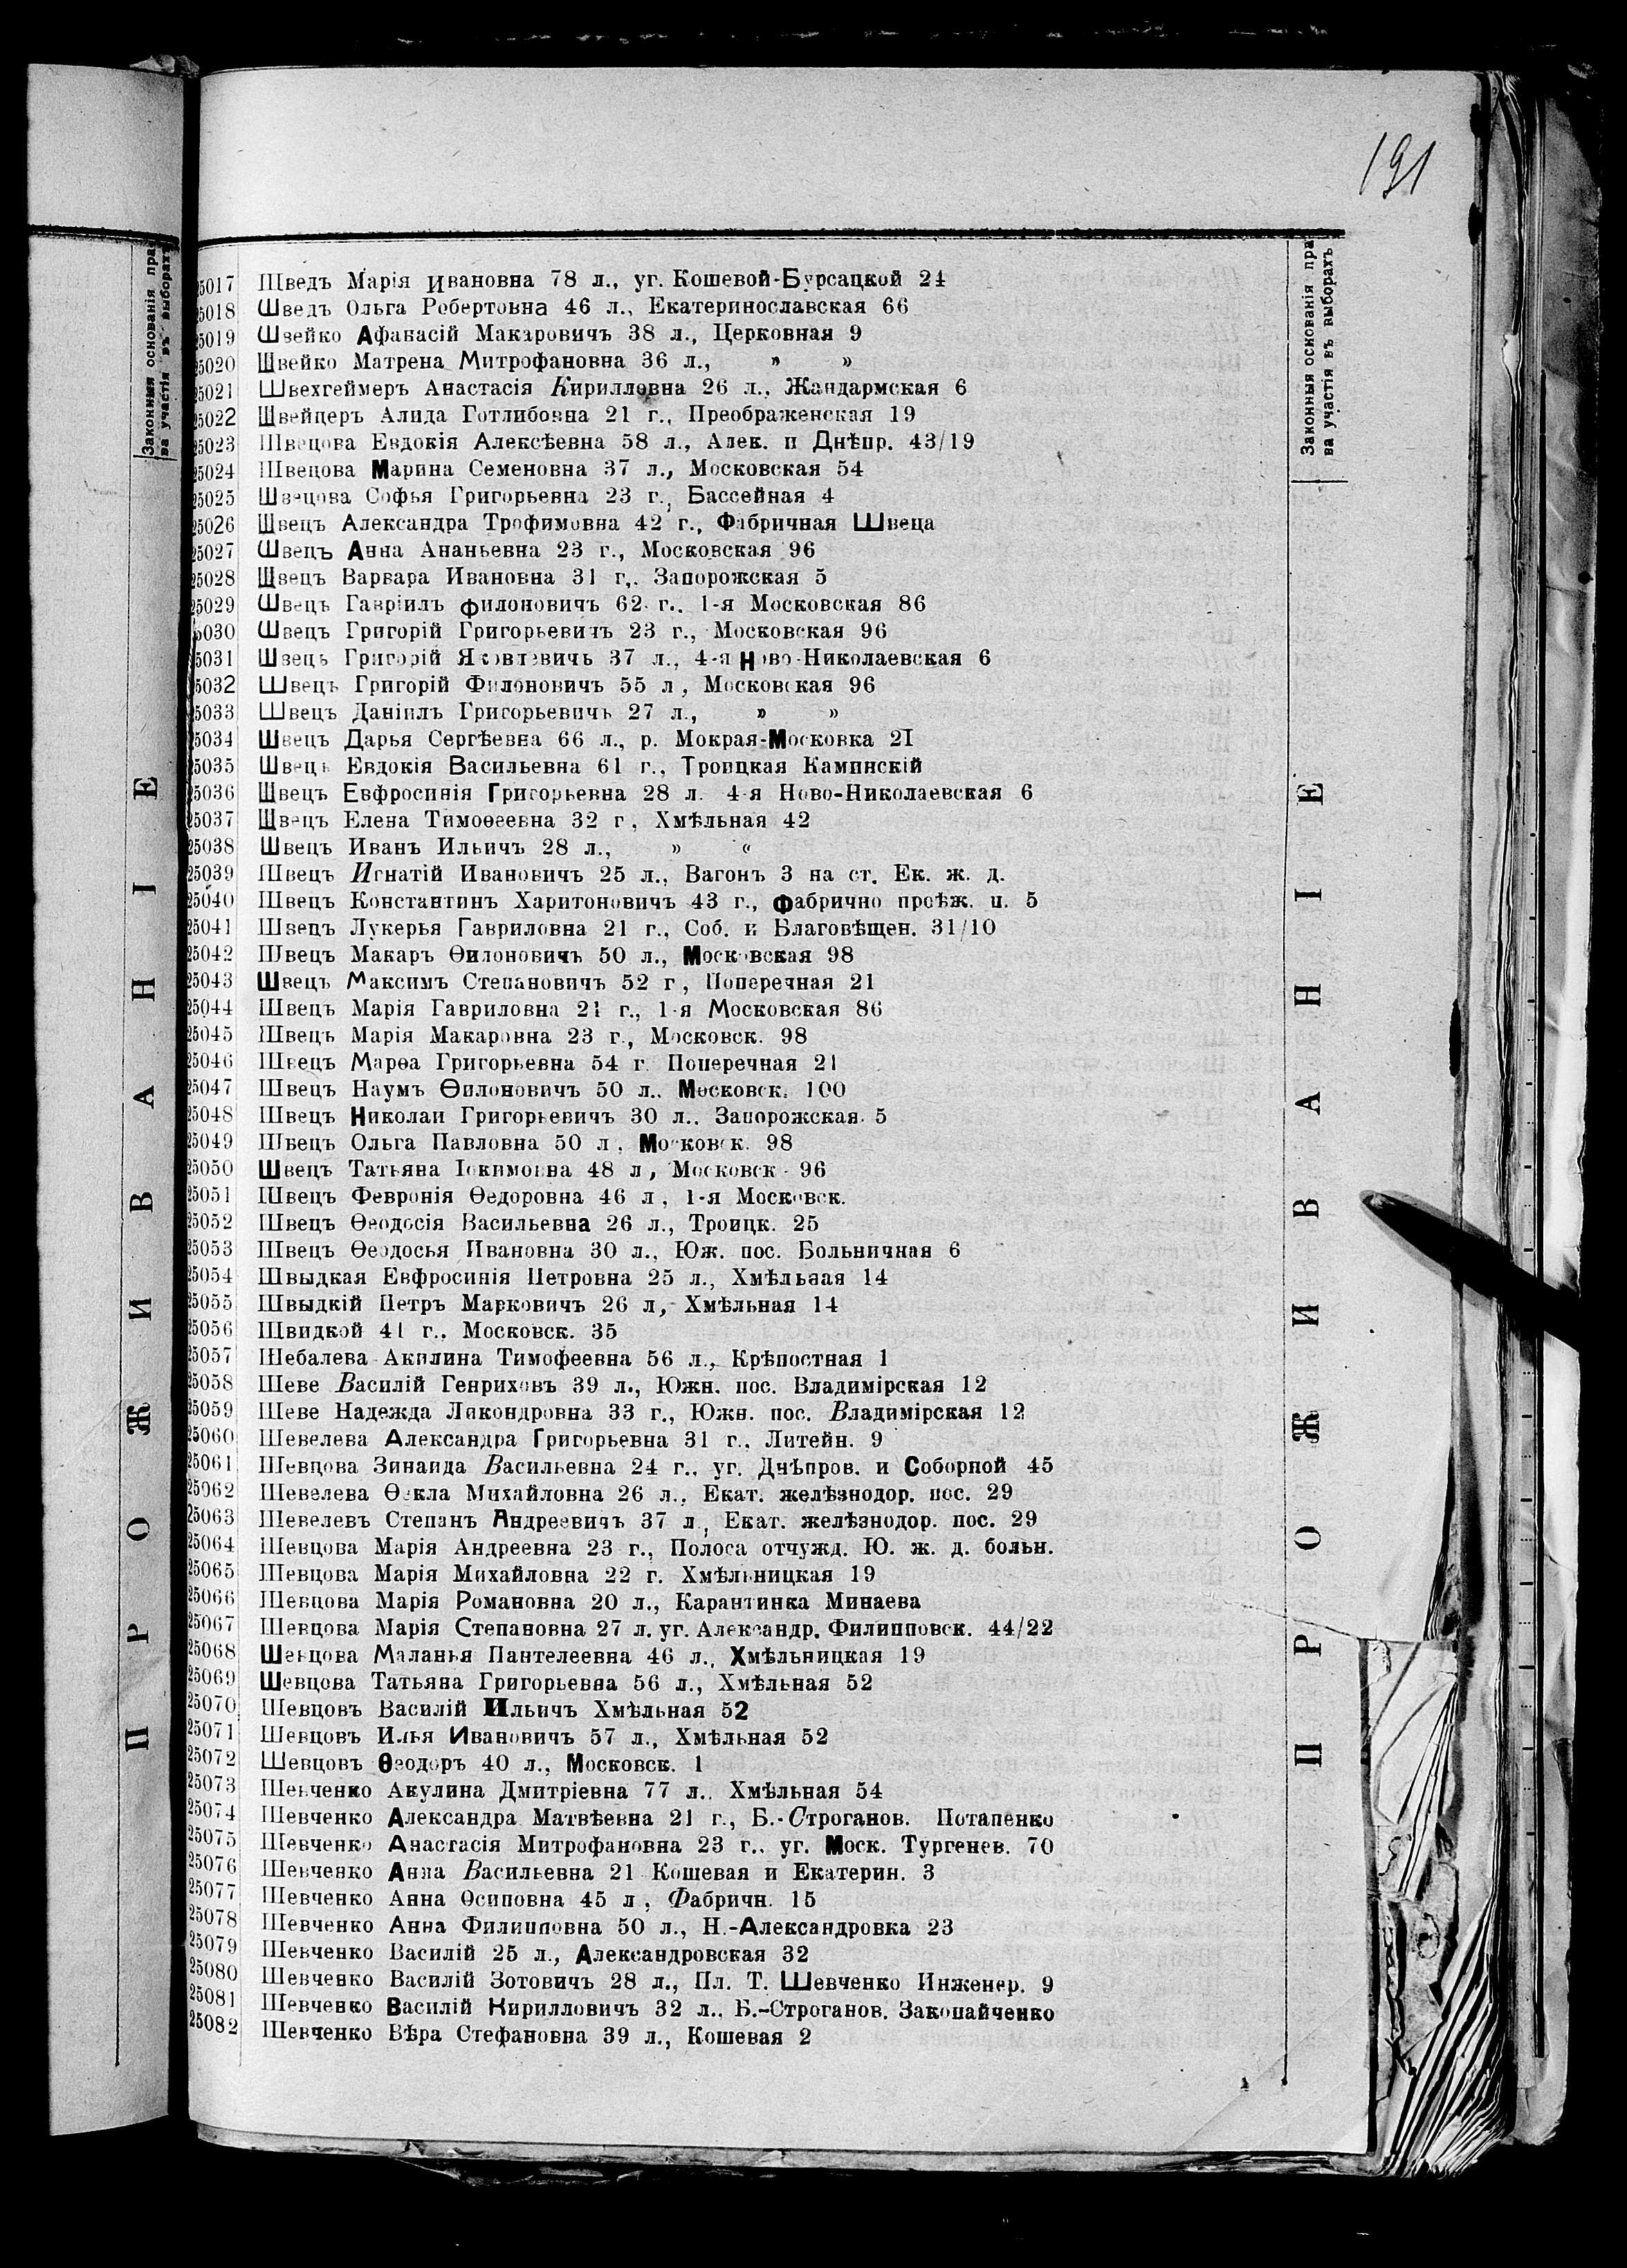 191
Законныя основанія пра
ва участія въ выборахъ
ПРОЖИВАНІЕ
25017 Шведъ Марія Ивановна 78 л., уг. Кошевой-Бурсацкой 24
25018 Шведъ Ольга Робертовна 46 л., Екатеринославская 66
25019 Швейко Афанасій Макаровичъ 38 л., Церковная 9
25020 Швейко Матрена Митрофановна 36 л., » »
25021 Швехгеймеръ Анастасія Кирилловна 26 л., Жандармская 6
25022 Швейцеръ Алида Готлибовна 21 г., Преображенская 19
25023 Швецова Евдокія Алексѣевна 58 л., Алек. и Днѣпр. 43/19
25024 Швецова Марина Семеновна 37 л., Московская 54
25025 Швецова Софья Григорьевна 23 г., Бассейная 4
25026 Швецъ Александра Трофимовна 42 г., Фабричная Швеца
25027 Швецъ Анна Ананьевна 23 г., Московская 96
25028 Швецъ Варвара Ивановна 31 г,. Запорожская 5
25029 Швецъ Гавріилъ филоновичъ 62 г.. 1-я Московская 86
25030 Швецъ Григорій Григорьевичъ 23 г., Московская 96
25031 Швецъ Григорій Яковлевичъ 37 л., 4-я Ново-Николаевская 6
25032 Швецъ Григорій Филоновичъ 55 л, Московская 96
25033 Швецъ Даніилъ Григорьевичъ 27 л., » »
25034 Швецъ Дарья Сергѣевна 66 л., р. Мокрая-Московка 21
25035 Швецъ Евдокія Васильевна 61 г., Троицкая Каминскій
25036 Швецъ Евфросинія Григорьевна 28 л. 4-я Ново-Николаевская 6
25037 Швецъ Елена Тимоѳеевна 32 г, Хмѣльная 42
25038 Швецъ Иванъ Ильичъ 28 л., » «
25039 Швецъ Игнатій Ивановичъ 25 л., Вагонъ 3 на ст. Ек. ж. д.
25040 Швецъ Константинъ Харитоновичъ 43 г., фабрично проѣж. п. 5
25041 Швецъ Лукерья Гавриловна 21 г., Соб. и Благовѣщен. 31/10
25042 Швецъ Макаръ Ѳилоновичъ 50 л., Московская 98
25043 Швецъ Максимъ Степановичъ 52 г, Поперечная 21
25044 Швецъ Марія Гавриловна 21 г., 1-я Московская 86
25045 Швецъ Марія Макаровна 23 г., Московск. 98
25046 Швецъ Марѳа Григорьевна 54 г. Поперечная 21
25047 Швецъ Наумъ Ѳилоновичъ 50 л.. Московск. 100
25048 Швецъ Николаи Григорьевичъ 30 л.. Запорожская. 5
25049 Швецъ Ольга Павловна 50 л, Московск. 98
25050 Швецъ Татьяна Іокимовна 48 л, Московск 96
25051 Швецъ Февронія Ѳедоровна 46 л, 1-я Московск.
25052 Швецъ Ѳеодосія Васильевна 26 л., Троицк. 25
25053 Швецъ Ѳеодосья Ивановна 30 л., Юж. пос. Больничная 6
25054 Швыдкая Евфросинія Петровна 25 л., Хмѣльная 14
25055 Швыдкій Петръ Марковичъ 26 л, Хмѣльная 14
25056 Швидкой 41 г.. Московск. 35
25057 Шебалева Акилина Тимофеевна 56 л., Крѣпостная 1
25058 Шеве Василій Генриховъ 39 л., Южн. пос. Владимірская 12
25059 Шеве Надежда Ликондровна 33 г., Южн. пос. Владимірская 12
25060 Шевелева Александра Григорьевна 31 г., Литейн. 9
25061 Шевцова Зинаида Васильевна 24 г., уг. Днѣпров. и Соборной 45
25062 Шевелева Ѳекла Михайловна 26 л., Екат. желѣзнодор. пос. 29
25063 Шевелевъ Степанъ Андреевичъ 37 л, Екат. желѣзнодор. пос. 29
25064 Шевцова Марія Андреевна 23 г., Полоса отчужд. Ю. ж. д. больн.
25065 Шевцова Марія Михайловна 22 г. Хмѣльницкая 19
25066 Шевцова Марія Романовна 20 л., Карантинка Минаева
25067 Шевцова Марія Степановна 27 л. уг. Александр. Филипповск. 44/22
25068 Шевцова Маланья Пантелеевна 46 л., Хмѣльницкая 19
25069 Шевцова Татьяна Григорьевна 56 л., Хмѣльная 52
25070 Шевцовъ Василій Ильичъ Хмѣльная 52
25071 Шевцовъ Илья Ивановичъ 57 л., Хмѣльная 52
25072 Шевцовъ Ѳеодоръ 40 л., Московск. 1
25073 Шевченко Акулина Дмитріевна 77 л.. Хмѣльная 54
25074 Шевченко Александра Матвѣевна 21 г., Б.-Строганов. Потапенко
25075 Шевченко Анастасія Митрофановна 23 г.. уг. Моск. Тургенев. 70
25076 Шевченко Анна Васильевна 21 Кошевая и Екатерин. 3
25077 Шевченко Анна Осиповна 45 л, Фабричн. 15
25078 Шевченко Анна Филипповна 50 л., Н.-Александровка 23
25079 Шевченко Василій 25 л., Александровская 32
25080 Шевченко Василій Зотовичъ 28 л., Пл. Т. Шевченко Инженер. 9
25081 Шевченко Василій Кирилловичъ 32 л.. Б.-Строганов. Закопайченко
25082 Шевченко Вѣра Стефановна 39 л., Кошевая 2
Законныя основанія пра
ва участія въ выборахъ
ПРОЖИВАНІЕ